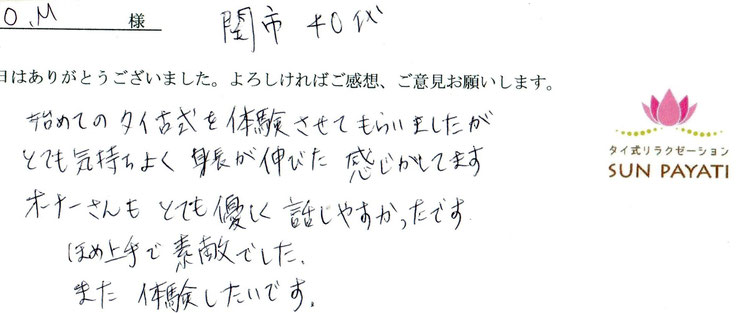 O.M 様 関市 40代
日はありがとうございました。よろしければご感想、ご意見お願いします。
始めてのタイ古式を体験させてもらいましたが
とても気持ちよく身長が伸びた感じがしてます
オーナーさんもとても優しく話しやすかったです。
ほめ上手で素敵でした。
また体験したいです。
タイ式リラクゼーション
SUN PAYATI